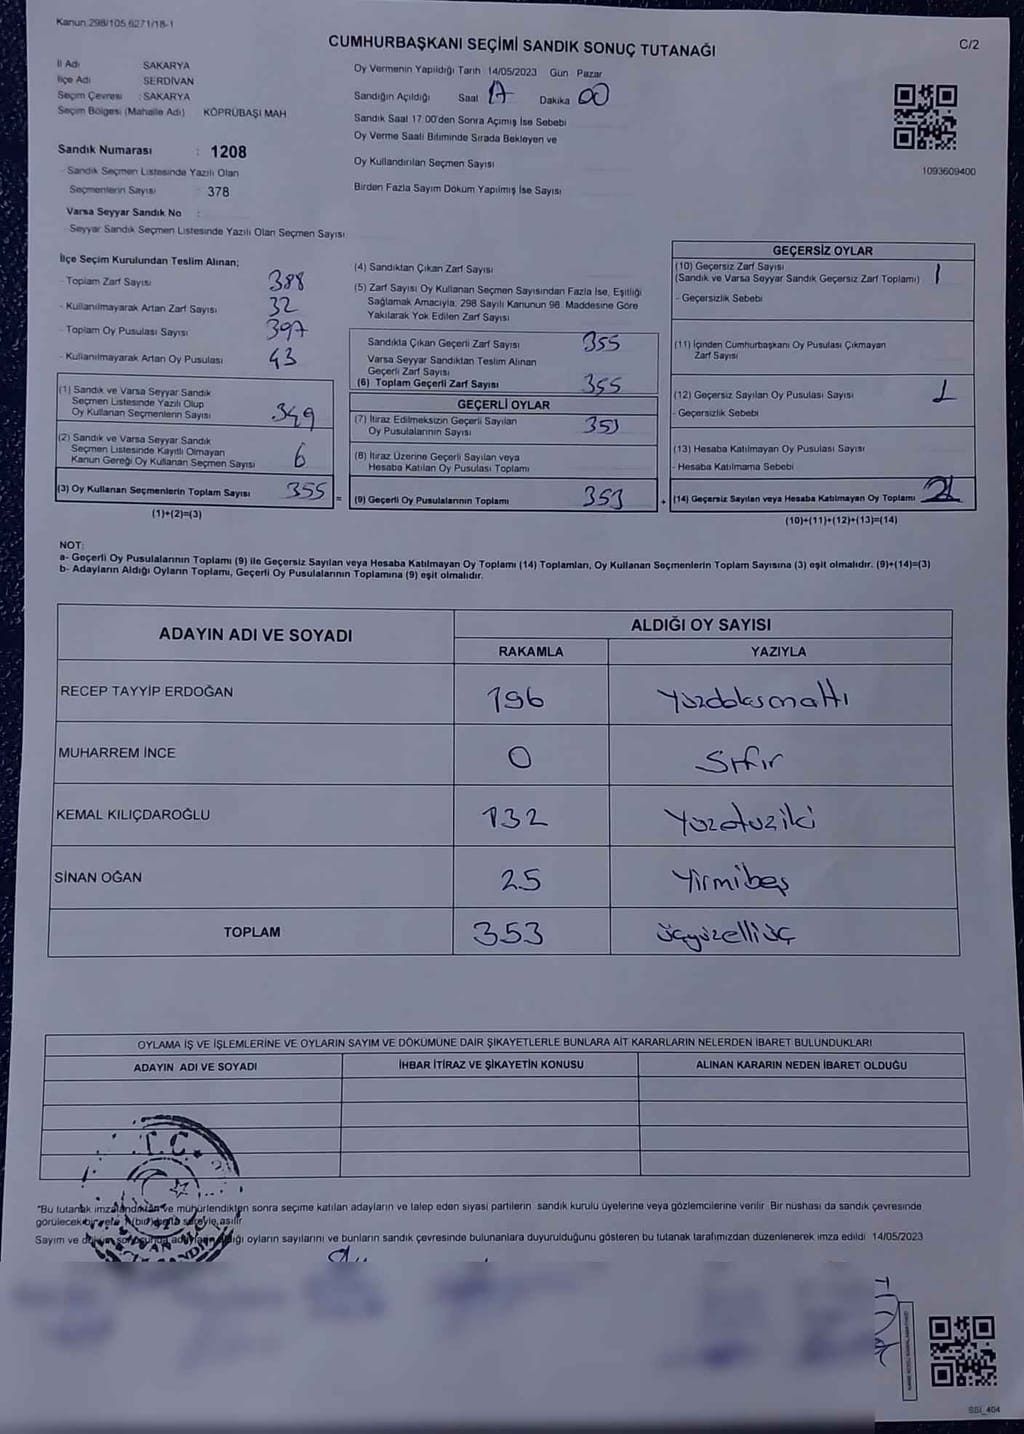 Kanun 298/105 6271/18-1
C/2
CUMHURBAŞKANI SEÇİMİ SANDIK SONUÇ TUTANAĞI
İl Adı SAKARYA
İlçe Adı SERDİVAN
Seçim Çevresi : SAKARYA
Seçim Bölgesi (Mahalle Adı) KÖPRÜBAŞI MAH
Sandık Numarası : 1208
Sandık Seçmen Listesinde Yazılı Olan
Seçmenlerin Sayısı : 378
Varsa Seyyar Sandık No :
Seyyar Sandık Seçmen Listesinde Yazılı Olan Seçmen Sayısı
Oy Vermenin Yapıldığı Tarih 14/05/2023 Gün Pazar
Sandığın Açıldığı Saat 17 Dakika 00
Sandık Saat 17 00'den Sonra Açımış İse Sebebi
Oy Verme Saati Bitiminde Sırada Bekleyen ve
Oy Kullandırılan Seçmen Sayısı
Birden Fazla Sayım Döküm Yapılmış İse Sayısı
1093609400
İlçe Seçim Kurulundan Teslim Alınan;
- Toplam Zarf Sayısı 388
- Kullanılmayarak Artan Zarf Sayısı 32
- Toplam Oy Pusulası Sayısı 397
- Kullanılmayarak Artan Oy Pusulası 43
(1) Sandık ve Varsa Seyyar Sandık
Seçmen Listesinde Yazılı Olup
Oy Kullanan Seçmenlerin Sayısı 349
(2) Sandık ve Varsa Seyyar Sandık
Seçmen Listesinde Kayıtlı Olmayan
Kanun Gereği Oy Kullanan Seçmen Sayısı 6
(3) Oy Kullanan Seçmenlerin Toplam Sayısı 355 =
(1)+(2)=(3)
(4) Sandıktan Çıkan Zarf Sayısı
(5) Zarf Sayısı Oy Kullanan Seçmen Sayısından Fazla İse, Eşitliği
Sağlamak Amacıyla, 298 Sayılı Kanunun 98. Maddesine Göre
Yakılarak Yok Edilen Zarf Sayısı
Sandıkta Çıkan Geçerli Zarf Sayısı 355
Varsa Seyyar Sandıktan Teslim Alınan
Geçerli Zarf Sayısı
(6) Toplam Geçerli Zarf Sayısı 355
GEÇERLİ OYLAR
(7) İtiraz Edilmeksizin Geçerli Sayılan
Oy Pusulalarının Sayısı 353
(8) İtiraz Üzerine Geçerli Sayılan veya
Hesaba Katılan Oy Pusulası Toplamı
(9) Geçerli Oy Pusulalarının Toplamı 353 +
GEÇERSİZ OYLAR
(10) Geçersiz Zarf Sayısı
(Sandık ve Varsa Seyyar Sandık Geçersiz Zarf Toplamı) 1
- Geçersizlik Sebebi
(11) İçinden Cumhurbaşkanı Oy Pusulası Çıkmayan
Zarf Sayısı
(12) Geçersiz Sayılan Oy Pusulası Sayısı 1
- Geçersizlik Sebebi
(13) Hesaba Katılmayan Oy Pusulası Sayısı
- Hesaba Katılmama Sebebi
(14) Geçersiz Sayılan veya Hesaba Katılmayan Oy Toplamı 2
(10)+(11)+(12)+(13)=(14)
NOT:
a- Geçerli Oy Pusulalarının Toplamı (9) ile Geçersiz Sayılan veya Hesaba Katılmayan Oy Toplamı (14) Toplamları, Oy Kullanan Seçmenlerin Toplam Sayısına (3) eşit olmalıdır. (9)+(14)=(3)
b- Adayların Aldığı Oyların Toplamı, Geçerli Oy Pusulalarının Toplamına (9) eşit olmalıdır.
ADAYIN ADI VE SOYADI
ALDIĞI OY SAYISI
RAKAMLA YAZIYLA
RECEP TAYYİP ERDOĞAN 196 Yüzdoksanaltı
MUHARREM İNCE 0 Sıfır
KEMAL KILIÇDAROĞLU 132 Yüzotuziki
SİNAN OĞAN 25 Yirmibeş
TOPLAM 353 üçyüzelliüç
OYLAMA İŞ VE İŞLEMLERİNE VE OYLARIN SAYIM VE DÖKÜMÜNE DAİR ŞİKAYETLERLE BUNLARA AİT KARARLARIN NELERDEN İBARET BULUNDUKLARI
ADAYIN ADI VE SOYADI İHBAR İTİRAZ VE ŞİKAYETİN KONUSU ALINAN KARARIN NEDEN İBARET OLDUĞU
T.C.
"Bu tutanak imzalandıktan ve mühürlendikten sonra seçime katılan adayların ve talep eden siyasi partilerin sandık kurulu üyelerine veya gözlemcilerine verilir. Bir nüshası da sandık çevresinde
görülecek bir yere süreyle asılır
Sayım ve döküm sonucunda adayların aldığı oyların sayılarını ve bunların sandık çevresinde bulunanlara duyurulduğunu gösteren bu tutanak tarafımızdan düzenlenerek imza edildi 14/05/2023
SBI_404